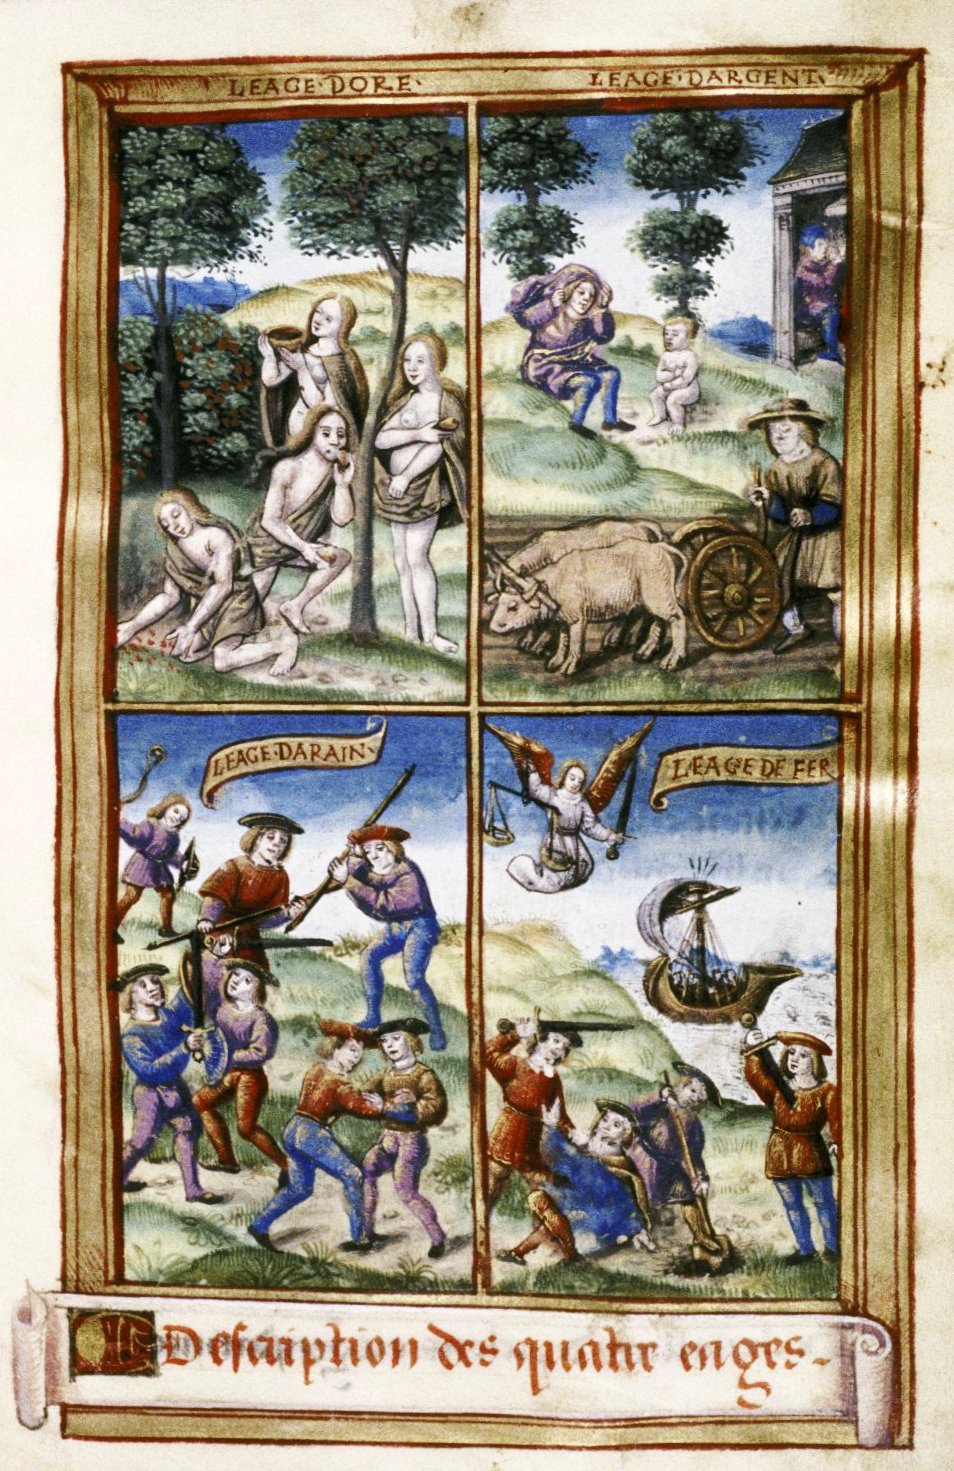 LEAGE·DORE·
LEAGE·DARGENT·
LEAGE·DARAIN·
LEAGE DE FER
Description des quatre eages.